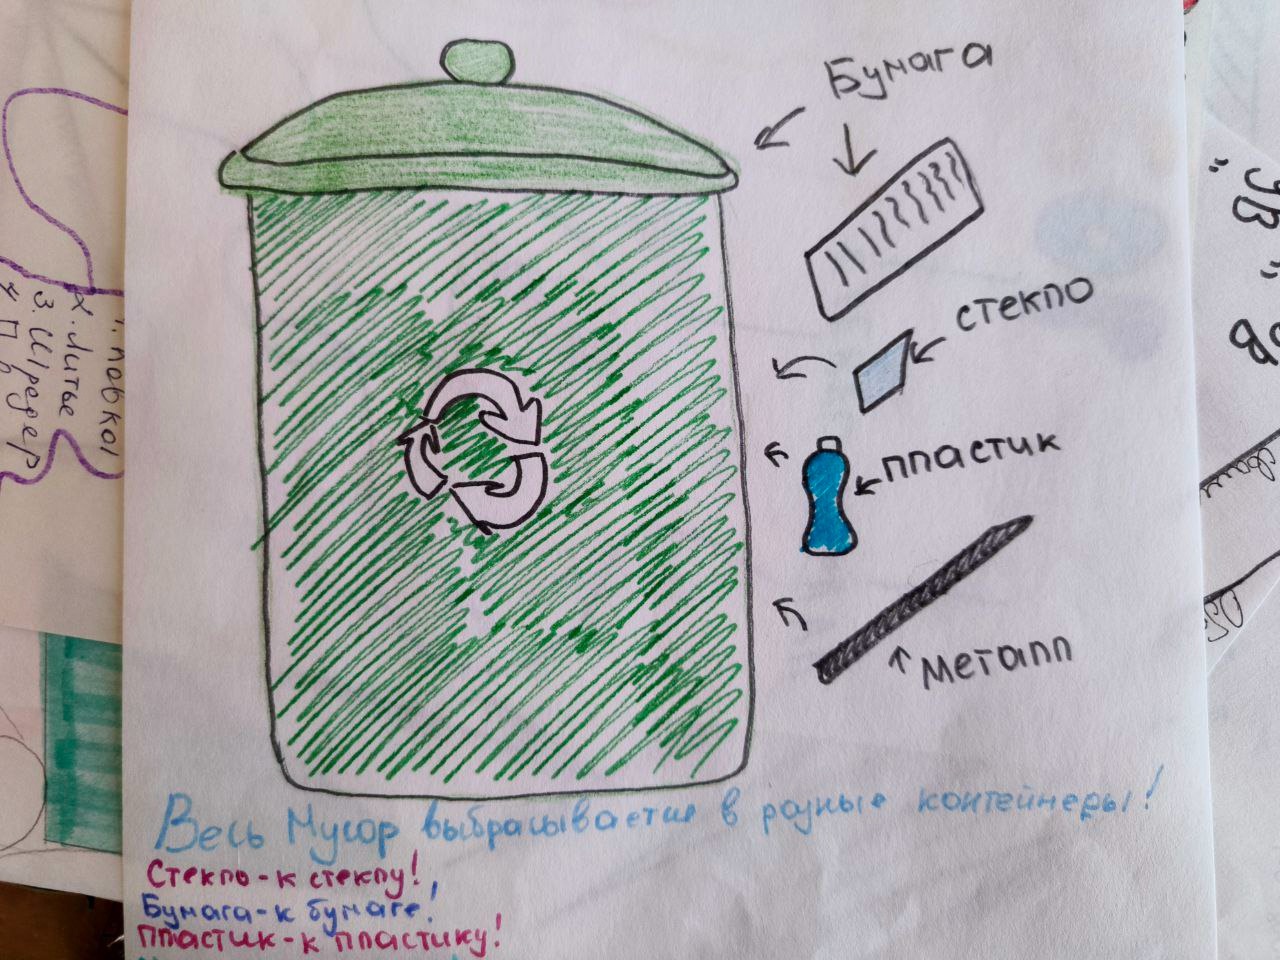 Бумага
стекло
пластик
металл
Весь Мусор выбрасывается в разные контейнеры!
Стекло-к стеклу!
Бумага-к бумаге!
Пластик-к пластику!
2. Литье
3. Шредер